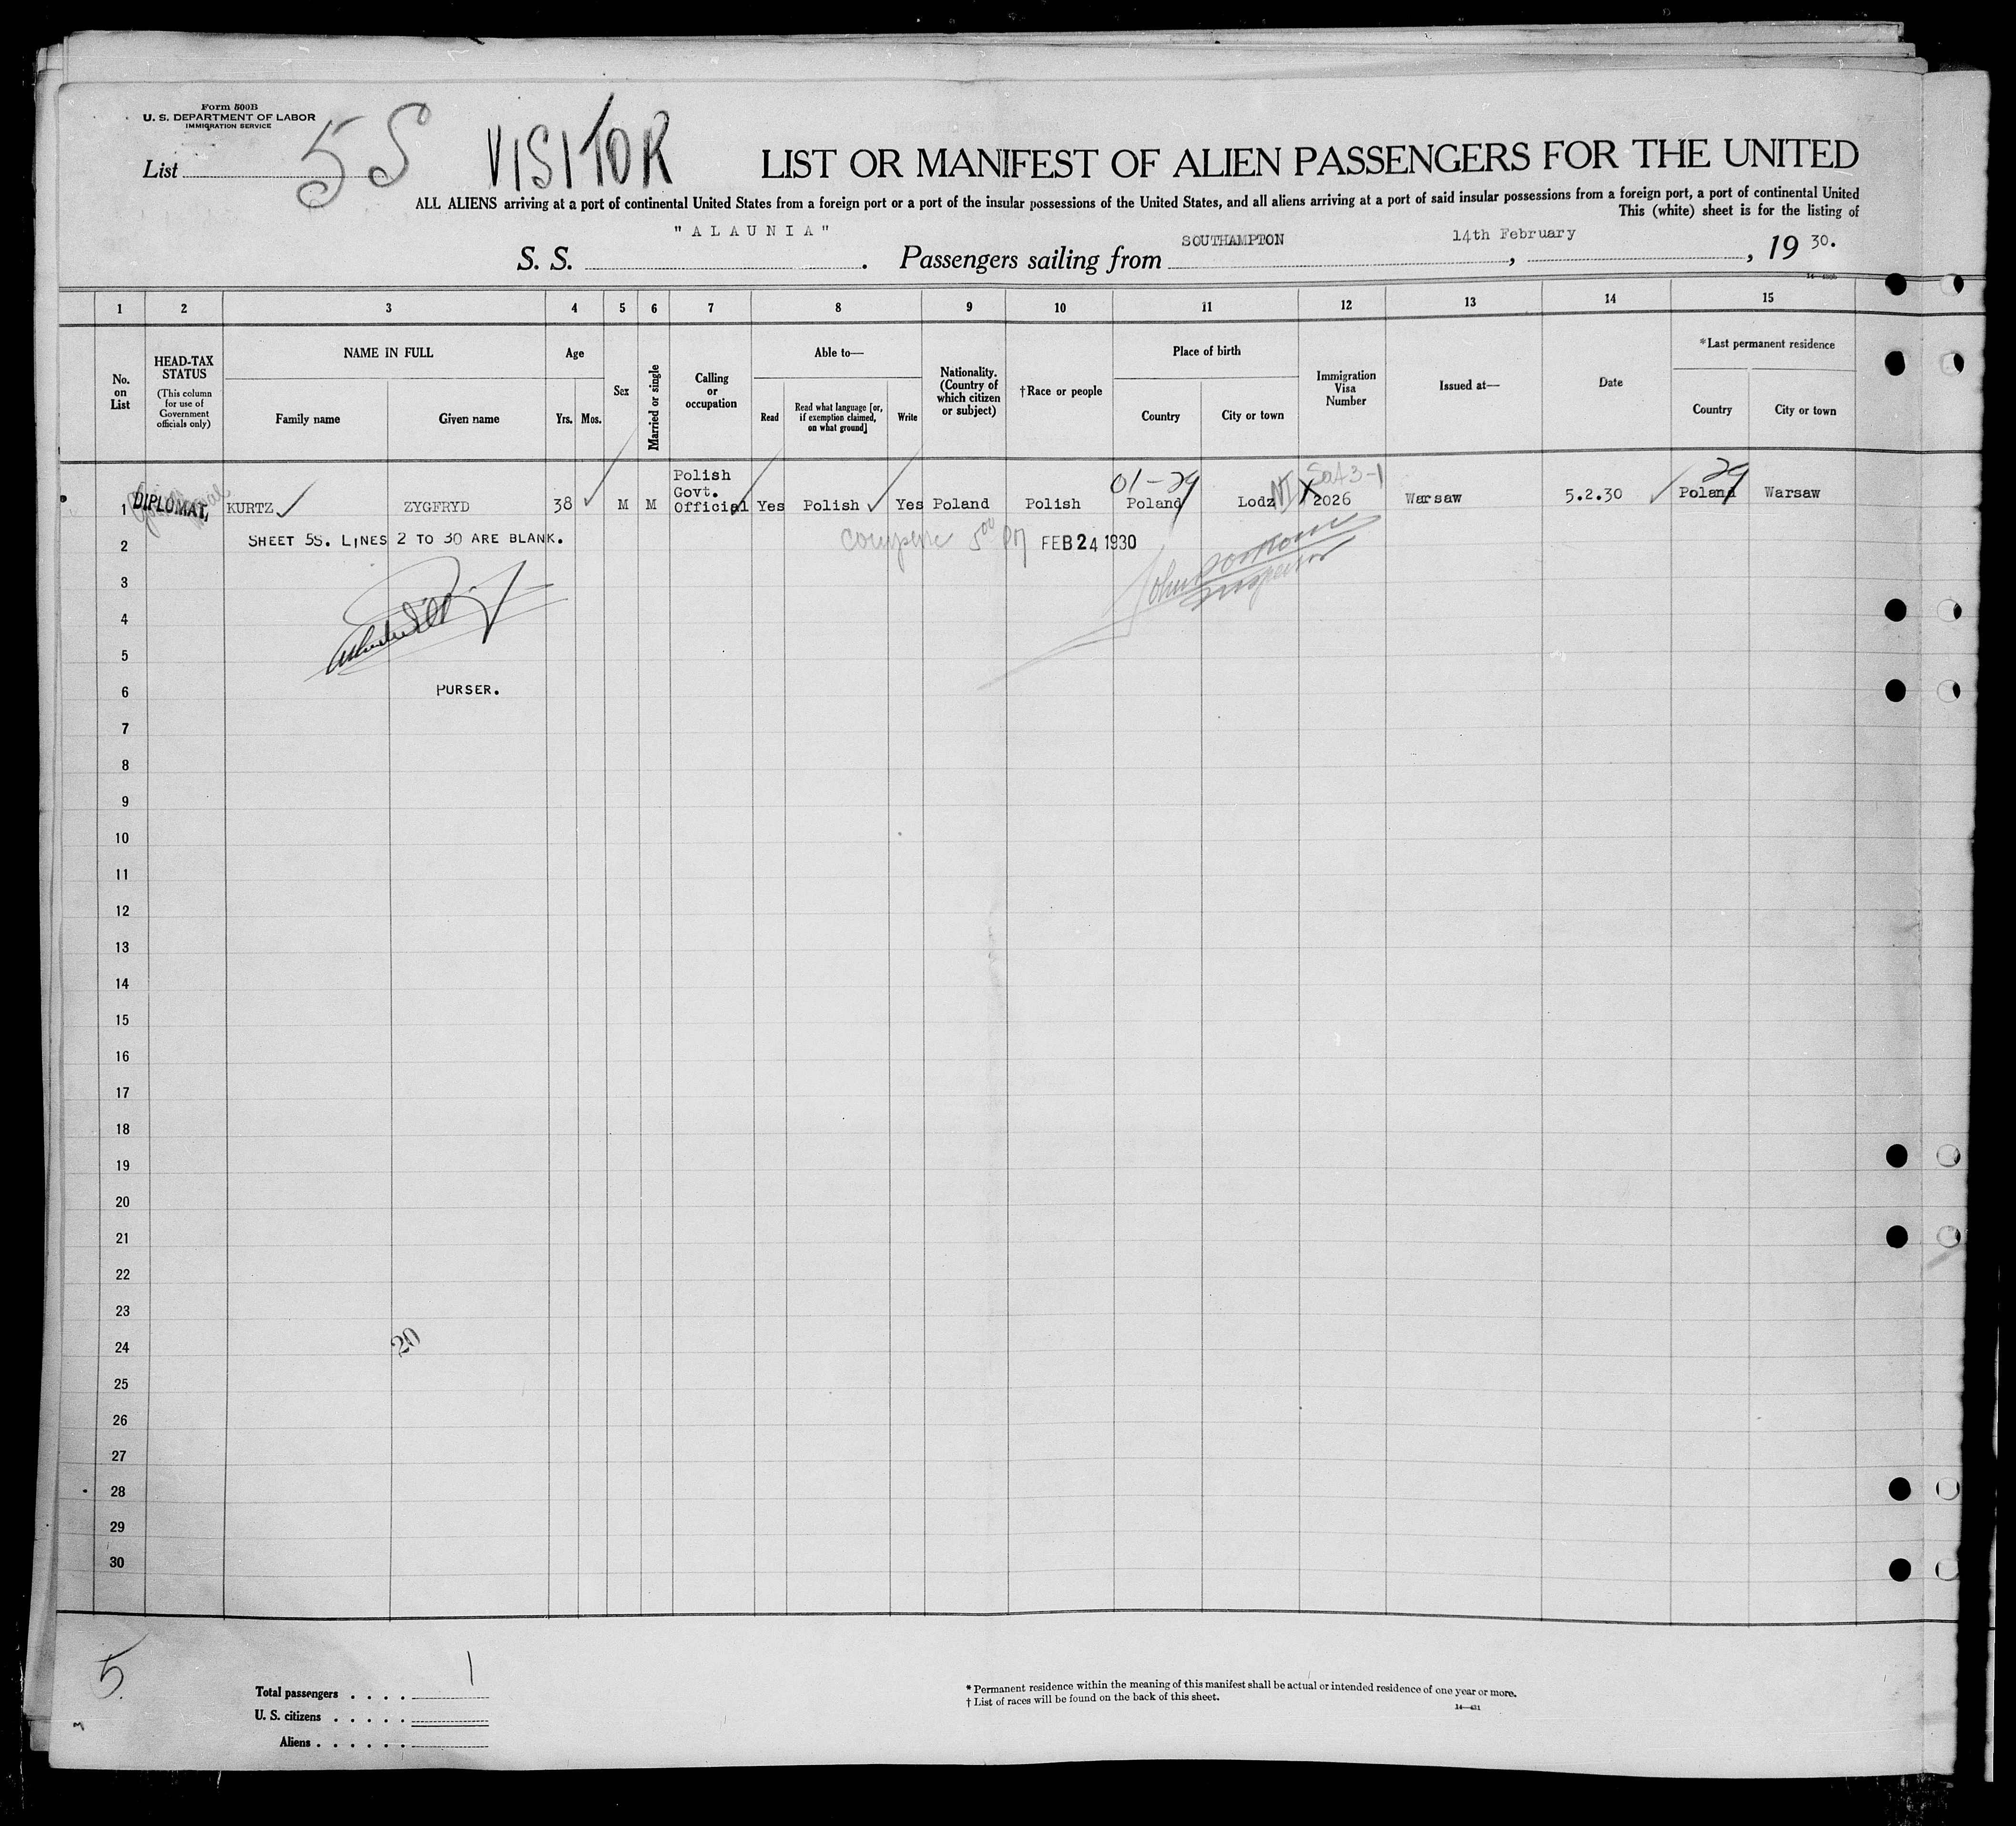 Form 500B
U. S. DEPARTMENT OF LABOR
IMMIGRATION SERVICE
List 5S VISITOR
LIST OR MANIFEST OF ALIEN PASSENGERS FOR THE UNITED
ALL ALIENS arriving at a port of continental United States from a foreign port or a port of the insular possessions of the United States, and all aliens arriving at a port of said insular possessions from a foreign port, a port of continental United
This (white) sheet is for the listing of
S. S. "ALAUNIA". Passengers sailing from SOUTHAMPTON, 14th February, 19 30.
1 2 3 4 5 6 7 8 9 10 11 12 13 14 15
No. on List
HEAD-TAX STATUS
(This column for use of Government officials only)
NAME IN FULL
Family name Given name
Age
Yrs. Mos.
Sex
Married or single
Calling or occupation
Able to—
Read
Read what language [or, if exemption claimed, on what ground]
Write
Nationality. (Country of which citizen or subject)
†Race or people
Place of birth
Country City or town
Immigration Visa Number
Issued at—
Date
*Last permanent residence
Country City or town
01-29 29
1 DIPLOMAT, KURTZ ZYGFRYD 38 M M Polish Govt. Official Yes Polish Yes Poland Polish Poland Lodz 2026 Warsaw 5.2.30 Poland Warsaw
2 SHEET 5S. LINES 2 TO 30 ARE BLANK. FEB 24 1930
3
4
5
6 PURSER.
7
8
9
10
11
12
13
14
15
16
17
18
19
20
21
22
23
24 20
25
26
27
28
29
30
5
Total passengers . . . . 1
U. S. citizens . . . . .
Aliens . . . . . .
* Permanent residence within the meaning of this manifest shall be actual or intended residence of one year or more.
† List of races will be found on the back of this sheet.
14—431